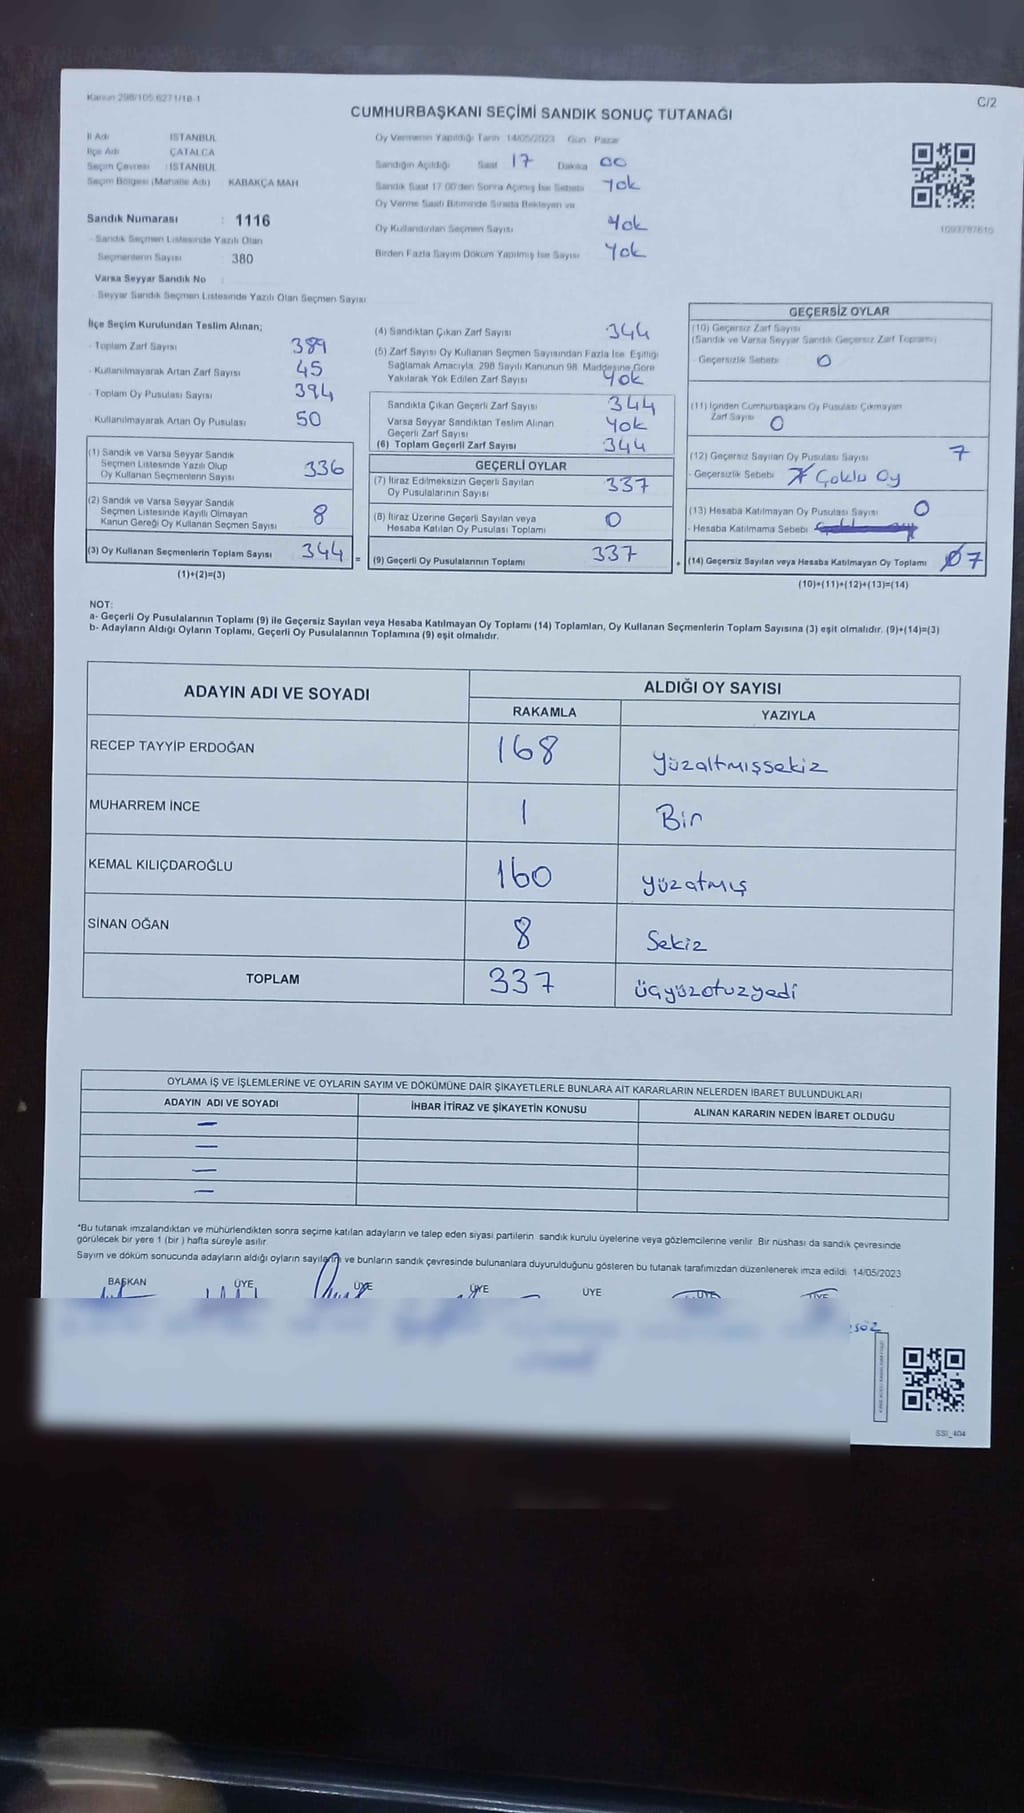 Kanun 298/105 6271/18-1
C/2
CUMHURBAŞKANI SEÇİMİ SANDIK SONUÇ TUTANAĞI
İl Adı İSTANBUL
İlçe Adı ÇATALCA
Seçim Çevresi : İSTANBUL
Seçim Bölgesi (Mahalle Adı) KABAKÇA MAH
Sandık Numarası : 1116
- Sandık Seçmen Listesinde Yazılı Olan
Seçmenlerin Sayısı 380
Varsa Seyyar Sandık No
- Seyyar Sandık Seçmen Listesinde Yazılı Olan Seçmen Sayısı
Oy Vermenin Yapıldığı Tarih 14/05/2023 Gün Pazar
Sandığın Açıldığı Saat 17 Dakika 00
Sandık Saat 17 00'den Sonra Açılmış İse Sebebi Yok
Oy Verme Saati Bitiminde Sırada Bekleyen ve
Oy Kullandırılan Seçmen Sayısı Yok
Birden Fazla Sayım Döküm Yapılmış İse Sayısı Yok
1093787610
İlçe Seçim Kurulundan Teslim Alınan;
- Toplam Zarf Sayısı 389
- Kullanılmayarak Artan Zarf Sayısı 45
- Toplam Oy Pusulası Sayısı 394
- Kullanılmayarak Artan Oy Pusulası 50
(1) Sandık ve Varsa Seyyar Sandık
Seçmen Listesinde Yazılı Olup
Oy Kullanan Seçmenlerin Sayısı 336
(2) Sandık ve Varsa Seyyar Sandık
Seçmen Listesinde Kayıtlı Olmayan
Kanun Gereği Oy Kullanan Seçmen Sayısı 8
(3) Oy Kullanan Seçmenlerin Toplam Sayısı 344 =
(1)+(2)=(3)
(4) Sandıktan Çıkan Zarf Sayısı 344
(5) Zarf Sayısı Oy Kullanan Seçmen Sayısından Fazla İse, Eşitliği
Sağlamak Amacıyla, 298 Sayılı Kanunun 98. Maddesine Göre
Yakılarak Yok Edilen Zarf Sayısı Yok
Sandıkta Çıkan Geçerli Zarf Sayısı 344
Varsa Seyyar Sandıktan Teslim Alınan
Geçerli Zarf Sayısı Yok
(6) Toplam Geçerli Zarf Sayısı 344
GEÇERLİ OYLAR
(7) İtiraz Edilmeksizin Geçerli Sayılan
Oy Pusulalarının Sayısı 337
(8) İtiraz Üzerine Geçerli Sayılan veya
Hesaba Katılan Oy Pusulası Toplamı 0
(9) Geçerli Oy Pusulalarının Toplamı 337 +
GEÇERSİZ OYLAR
(10) Geçersiz Zarf Sayısı
(Sandık ve Varsa Seyyar Sandık Geçersiz Zarf Toplamı)
- Geçersizlik Sebebi 0
(11) İçinden Cumhurbaşkanı Oy Pusulası Çıkmayan
Zarf Sayısı 0
(12) Geçersiz Sayılan Oy Pusulası Sayısı 7
- Geçersizlik Sebebi Çoklu Oy
(13) Hesaba Katılmayan Oy Pusulası Sayısı 0
- Hesaba Katılmama Sebebi
(14) Geçersiz Sayılan veya Hesaba Katılmayan Oy Toplamı 07
(10)+(11)+(12)+(13)=(14)
NOT:
a- Geçerli Oy Pusulalarının Toplamı (9) ile Geçersiz Sayılan veya Hesaba Katılmayan Oy Toplamı (14) Toplamları, Oy Kullanan Seçmenlerin Toplam Sayısına (3) eşit olmalıdır. (9)+(14)=(3)
b- Adayların Aldığı Oyların Toplamı, Geçerli Oy Pusulalarının Toplamına (9) eşit olmalıdır.
ADAYIN ADI VE SOYADI ALDIĞI OY SAYISI
RAKAMLA YAZIYLA
RECEP TAYYİP ERDOĞAN 168 yüzaltmışsekiz
MUHARREM İNCE 1 Bir
KEMAL KILIÇDAROĞLU 160 yüzatmış
SİNAN OĞAN 8 Sekiz
TOPLAM 337 üçyüzotuzyedi
OYLAMA İŞ VE İŞLEMLERİNE VE OYLARIN SAYIM VE DÖKÜMÜNE DAİR ŞİKAYETLERLE BUNLARA AİT KARARLARIN NELERDEN İBARET BULUNDUKLARI
ADAYIN ADI VE SOYADI İHBAR İTİRAZ VE ŞİKAYETİN KONUSU ALINAN KARARIN NEDEN İBARET OLDUĞU
—
—
—
—
*Bu tutanak imzalandıktan ve mühürlendikten sonra seçime katılan adayların ve talep eden siyasi partilerin sandık kurulu üyelerine veya gözlemcilerine verilir. Bir nüshası da sandık çevresinde
görülecek bir yere 1 (bir ) hafta süreyle asılır.
Sayım ve döküm sonucunda adayların aldığı oyların sayılarını ve bunların sandık çevresinde bulunanlara duyurulduğunu gösteren bu tutanak tarafımızdan düzenlenerek imza edildi. 14/05/2023
BAŞKAN ÜYE ÜYE ÜYE ÜYE ÜYE ÜYE
SSI_404